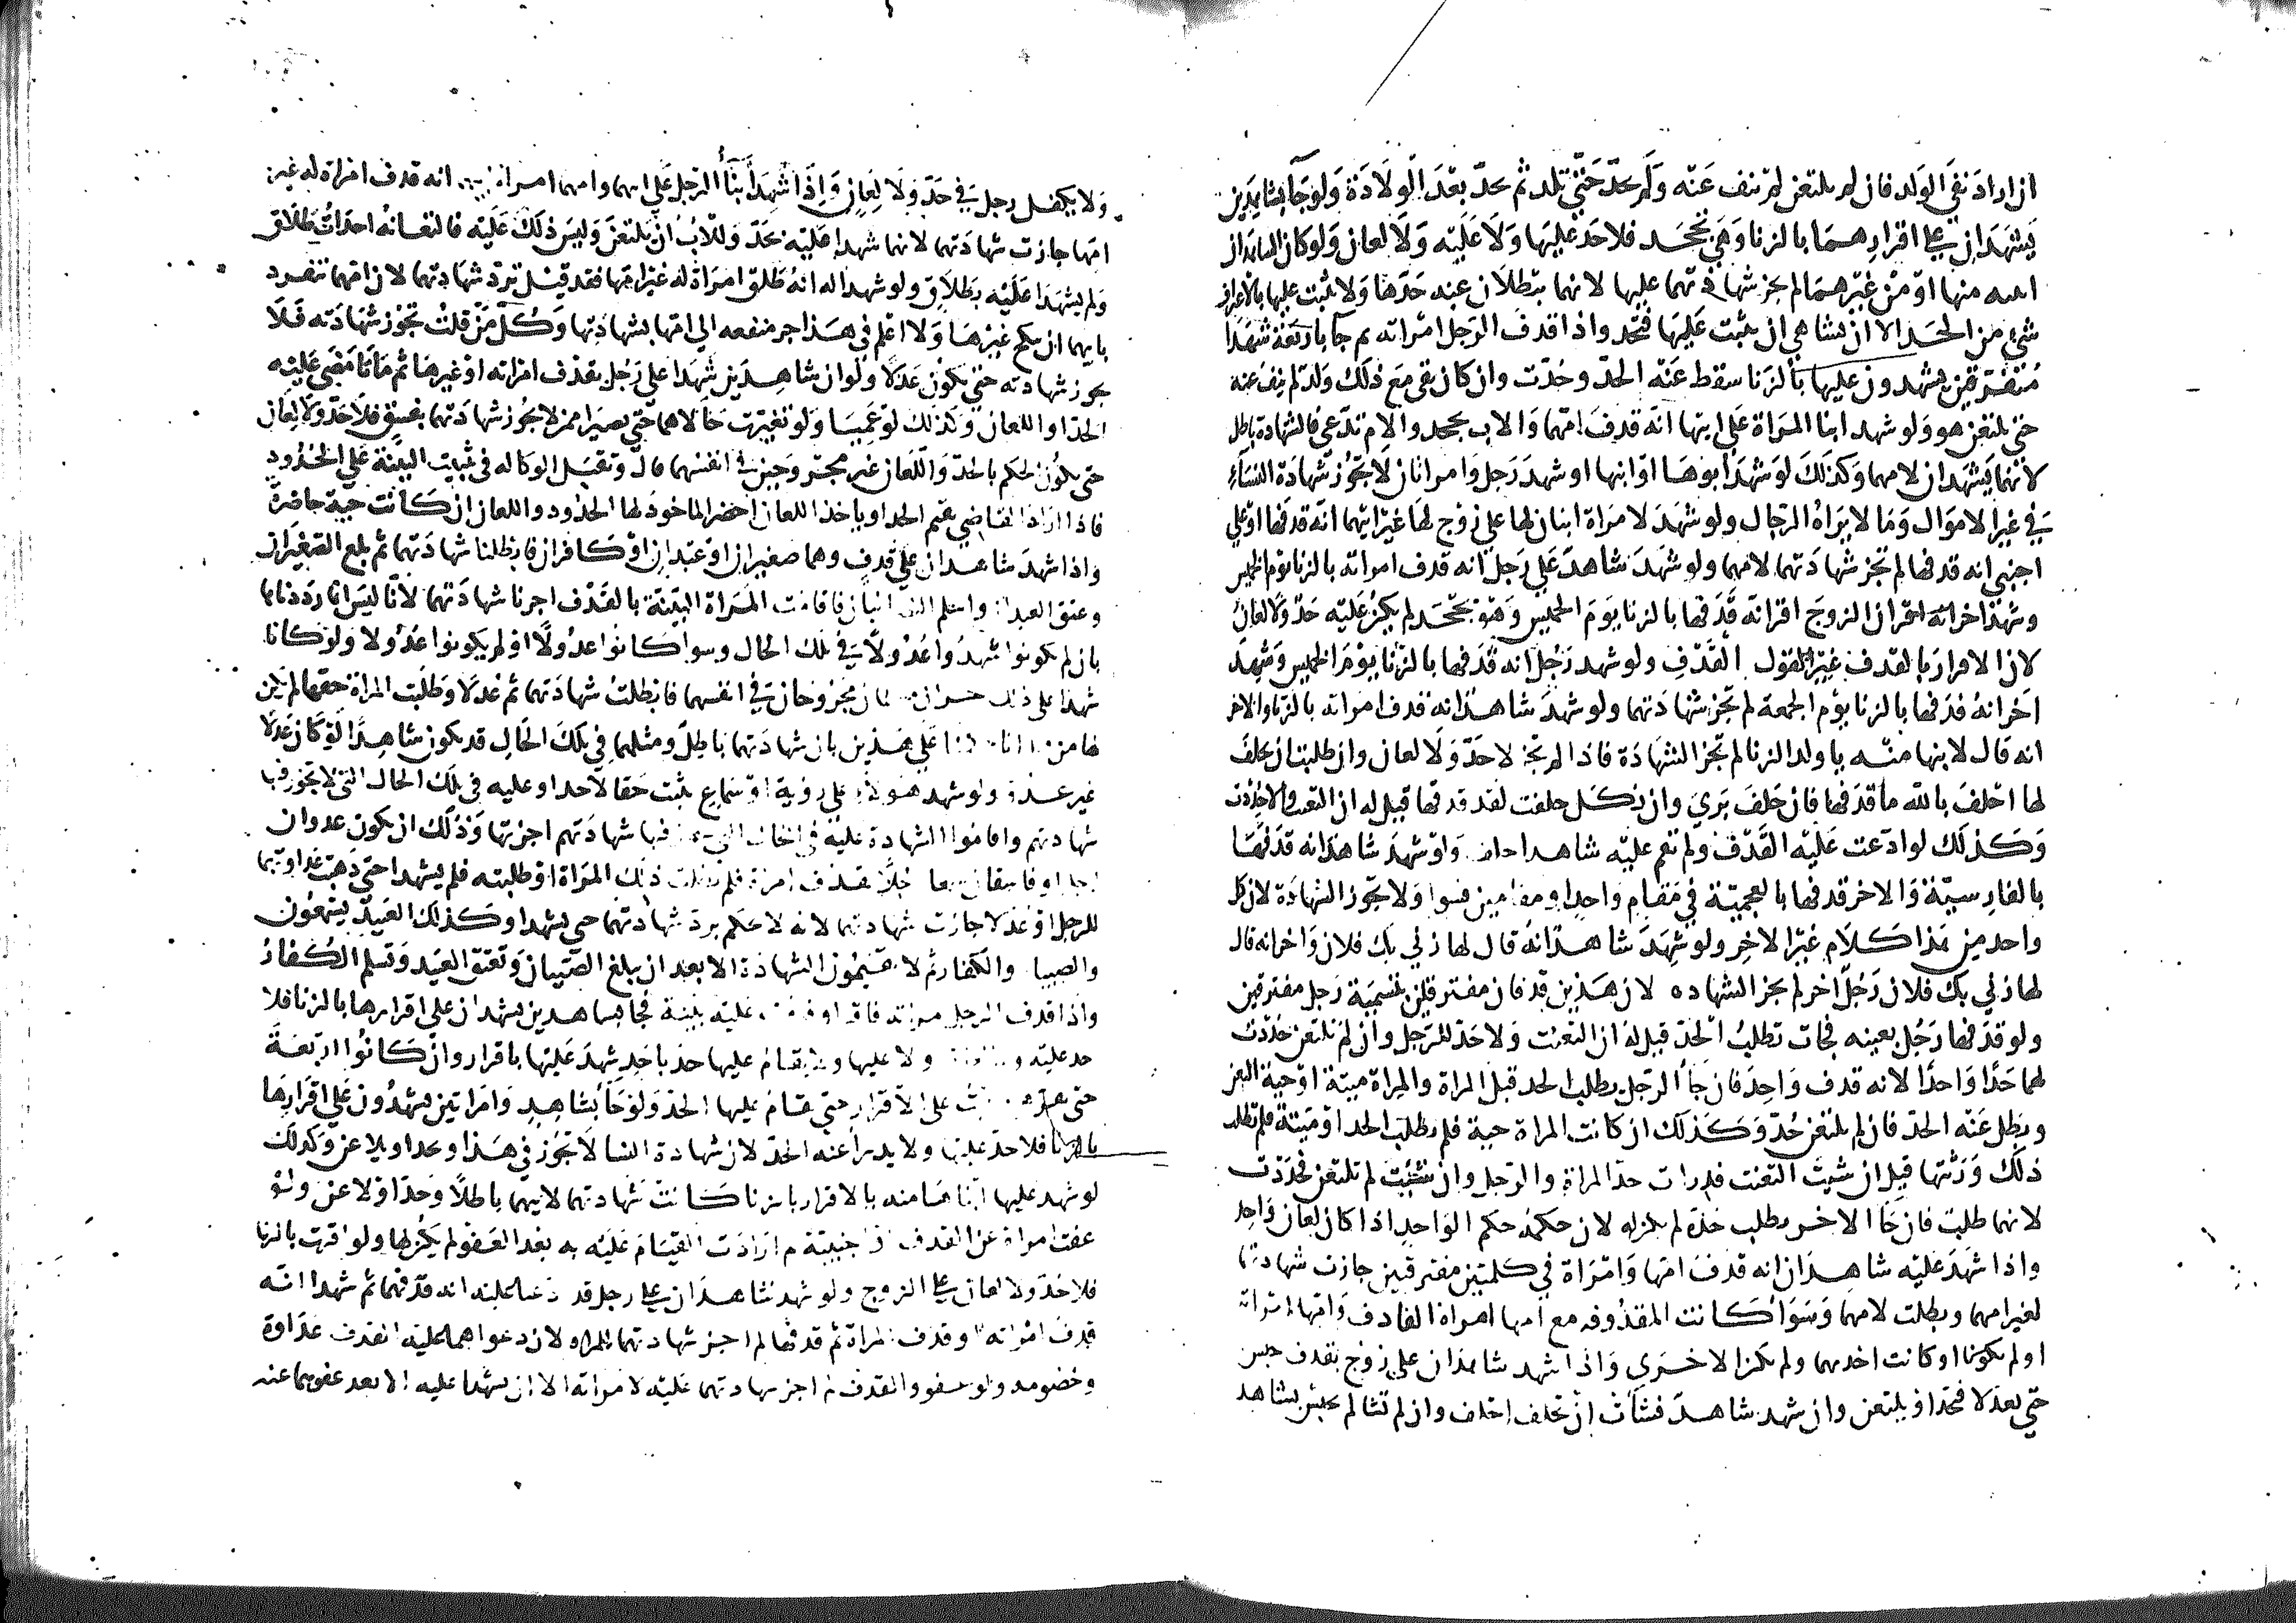 ان اراد نفي الولد فان لم يلتعن لم ننف عنه ولم يحد حتى تلد ثم يحد بعد الولادة ولو جا بشاهدين
يشهدان على اقرارهما بالزنا وهي تجحد فلا حد عليها ولا عليه ولا لعان ولو كان الشاهدان
ابنيه منها او من غيرهما لم تجز شهادتهما عليها لانهما يبطلان عنه حدها ولا يثبت عليها بالاعتراف
شيء من الحد الا ان تشا هي ان يثبت عليها فتحد واذا قذف الرجل امراته ثم جا باربعة شهدا
متفرقين يشهدون عليها بالزنا سقط عنه الحد وحدت وان كان نفى مع ذلك ولدا لم ينف عنه
حتى يلتعن هو ولو شهد ابنا المراة على ابيها انه قذف امهما والاب يجحد والام تدعي فالشهادة باطل
لانهما يشهدان لامهما وكذلك لو شهد ابوها او ابنها او شهد رجل وامراتان لا تجوز شهادة النساء
في غير الاموال وما لا يراه الرجال ولو شهد لامراة ابنان لها على زوج لها غير ابيهما انه قذفها او على
اجنبي انه قذفها لم تجز شهادتهما لامهما ولو شهد شاهد على رجل انه قذف امراته بالزنا يوم الخميس
وشهد اخر انه اقر ان الزوج اقر انه قذفها بالزنا يوم الخميس وهو يجحد لم يكن عليه حد ولا لعان
لان الاقرار بالقذف غير القول القذف ولو شهد رجل انه قذفها بالزنا يوم الخميس وشهد
اخر انه قذفها بالزنا يوم الجمعة لم تجز شهادتهما ولو شهد شاهد انه قذف امراته بالزنا والاخر
انه قال لابنها منه يا ولد الزنا لم تجز الشهادة فاذا لم تجز لا حد ولا لعان وان طلبت ان يحلف
لها احلف بالله ما قذفها فان حلف بري وان نكل حلفت لقد قذفها قيل له ان التعنت والا حددت
وكذلك لو ادعت عليه القذف ولم تقم عليه شاهدا حلف ولو شهد شاهد انه قذفها
بالفارسية والاخر قذفها بالعجمية في مقام واحد او مقامين فسوا ولا تجوز الشهادة لان كل
واحد من هذا كلام غير الاخر ولو شهد شاهد انه قال لها زنى بك فلان واخر انه قال
لها زنى بك فلان رجل اخر لم تجز الشهاده لان هذين قذفان مفترقان بتسمية رجل مفترقين
ولو قذفها رجل بعينه فجات تطلب الحد قيل له ان التعنت ولا حد للرجل وان لم تلتعن حددت
لهما حدا واحدا لانه قذف واحد فان جا الرجل يطلب الحد قبل المراة والمراة ميتة او حية التعن
وبطل عنه الحد فان لم يلتعن حد وكذلك ان كانت المراة حية فلم تطلب الحد او ميتة فلم تطلب
ذلك ورثتها قيل ان شيت التعنت فدرات حد المراة والرجل وان شيت لم تلتعن فحددت
لايهما طلب فان جا الاخر يطلب حده لم يكن له لان حكمه حكم الواحد اذا كان لعان واحد
واذا شهد عليه شاهدان انه قذف امهما وامراة في كلمتين مفترقتين جازت شهادتهما
لغير امهما وبطلت لامهما وسوا كانت المقذوفه مع امهما امراة القاذف وامهما امراته
او لم تكونا او كانت احديهما ولم تكن الاخرى واذا شهد شاهدان على زوج بقذف حبس
حتى يعدلا فيحد او يلتعن وان شهد شاهد فشات ان تحلف احلف وان لم تشا لم يحبس بشاهد
ولا يكفل رجل في حد ولا لعان واذا شهد ابنا الرجل على ابيهما وامهما امراة انه قذف امراة له غير
امهما جازت شهادتهما لانهما شهدا عليه بحد وللاب ان يلتعن وليس ذلك عليه فالتعانه احداث طلاق
ولم يشهدا عليه بطلاق ولو شهدا له انه طلق امراة له غير امهما فقد قيل ترد شهادتهما لان امهما تنفرد
بابيهما ان ينكح غيرها ولا اعلم في هذا جر منفعه الى امهما بشهادتهما وكل من قلت تجوز شهادته فلا
تجوز شهادته حتى يكون عدلا ولو ان شاهدين شهدا على رجل بقذف امراته او غيرها ثم ماتا مضى عليه
الحد او اللعان وكذلك لو عميا ولو تغيرت حالاهما حتى يصيرا ممن لا تجوز شهادتهما بفسق فلا حد ولا لعان
حتى يكون الحكم بالحد واللعان غير مجروحين في انفسهما قال وتقبل الوكاله في تثبيت البينة على الحدود
فاذا اراد القاضي يقيم الحد او ياخذ اللعان احضر الماخوذ لها الحدود واللعان ان كانت حية حاضرة
واذا شهد شاهدان على قذف وهما صغيران او عبدان او كافران فابطلنا شهادتهما ثم بلغ الصغيران
وعتق العبدان واسلم الذميان فاقامت المراة البينة بالقذف اجزنا شهادتهما لانا ليس انا رددناهما
بان لم يكونوا شهدوا عدولا في تلك الحال وسوا كانوا عدولا او لم يكونوا عدولا ولو كانا
شهدا على ذلك مجروحان في انفسهما فابطلت شهادتهما ثم عدلا وطلبت المراة حقها لم يكن
لها من على هذين بان شهادتهما باطل ومثلهما في تلك الحال قد يكون شاهدا لو كان عدلا
غير عدو ولو شهد هولاء على رؤية او سماع يثبت حقا لاحد او عليه في تلك الحال التي لا تجوز فيها
شهادتهم واقاموا الشهادة عليه في الحال التي فيها شهادتهم اجزتها وكذلك ان يكون عدوان
لرجل او فاسقان سمعا رجلا يقذف امراة فلم تطلب ذلك المراة او طلبته فلم يشهدا حتى ذهبت عداوتهما
للرجل او عدلا جازت شهادتهما لانه لا حكم برد شهادتهما حتى يشهدا وكذلك العبيد يسمعون
والصبيان والكفار ثم لا يقيمون الشهادة الا بعد ان يبلغ الصبيان وتعتق العبيد وتسلم الكفار
واذا قذف الرجل امراته فاقر او قامت عليه بينة فجا بشاهدين يشهدان على اقرارها بالزنا فلا
حد عليه ولا عليها ولا يقام عليها حد باحد شهد عليها باقرار وان كانوا اربعة
حتى على الاقرار حتى يقام عليها الحد ولو جا بشاهد وامراتين يشهدون على اقرارها
بالزنا فلا حد عليها ولا يدرا عنه الحد لان شهادة النسا لا تجوز في هذا ويحد او يلاعن وكذلك
لو شهد عليها ابناها منه بالاقرار بالزنا كانت شهادتهما لابيهما باطلا وحد او لاعن ولو
عفت امراة عن القذف او اجنبية ثم ارادت القيام عليه به بعد العفو لم يكن لها ولو اقرت بالزنا
فلا حد ولا لعان على الزوج ولو شهد شاهدان على رجل قد ادعيا عليه انه قذفهما ثم شهدا انه
قذف امراته او قذف امراة ثم قذفهما لم اجز شهادتهما للمراه لان دعواهما عليه القذف عداوة
وخصومه ولو عفوا القذف لم اجز شهادتهما عليه لامراته الا ان يشهدا عليه الا بعد عفوهما عنه